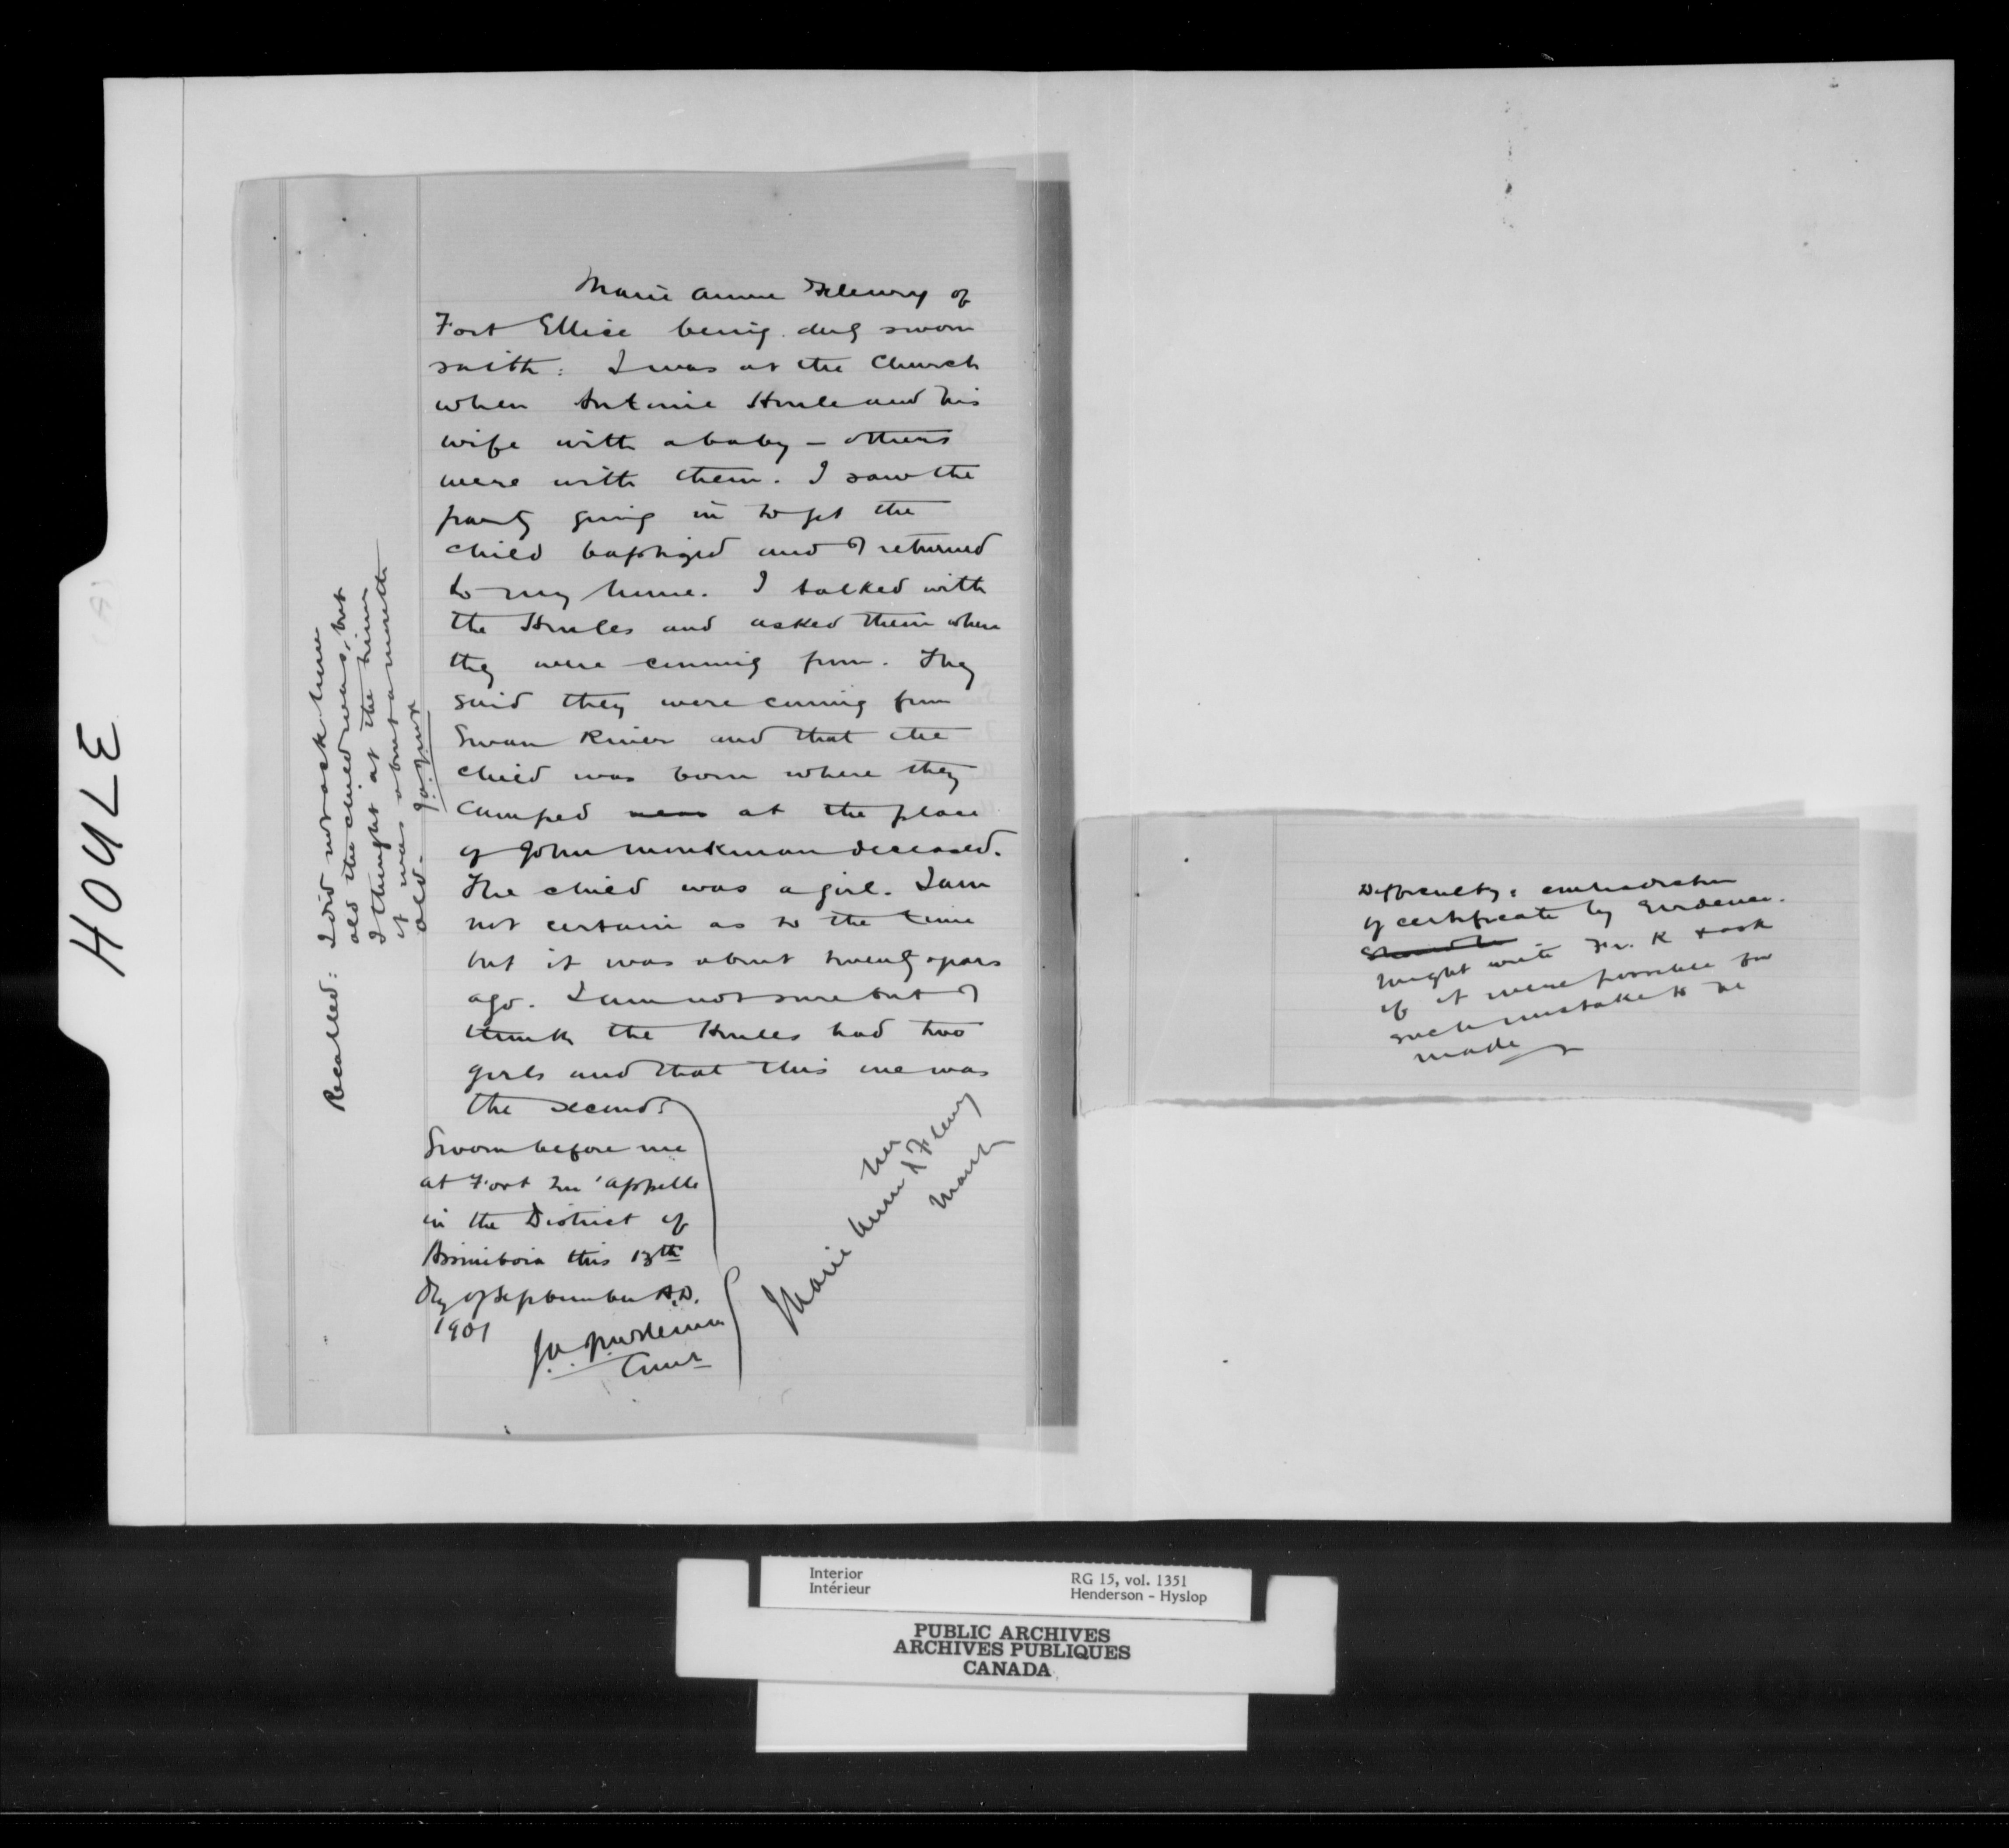 HOULE
Marie Anne Fleury of
Fort Ellice being duly sworn
saith: I was at the Church
when Antoine Houle and his
wife with a baby – others
were with them. I saw the
party going in to get the
child baptized and I returned
to my home. I talked with
the Houles and asked them where
they were coming from. They
said they were coming from
Swan River and that the
child was born where they
camped near at the place
of John Monkman deceased.
The child was a girl. I am
not certain as to the time
but it was about twenty years
ago. I am not sure but I
think the Houles had two
girls and that this one was
the second.
Sworn before me
at Fort Qu'appelle
in the District of
Assiniboia this 13th
day of September A.D.
1901
Comr
her
Marie Anne X Fleury
mark
Recalled: I did not ask how
old the child was, but
I thought at the time
it was about a month
old.
Difficulty: contradiction
of certificate by Evidence.
might write Fr. K & ask
if it were possible for
such mistake to be
made
Interior
Intérieur
RG 15, vol. 1351
Henderson - Hyslop
PUBLIC ARCHIVES
ARCHIVES PUBLIQUES
CANADA